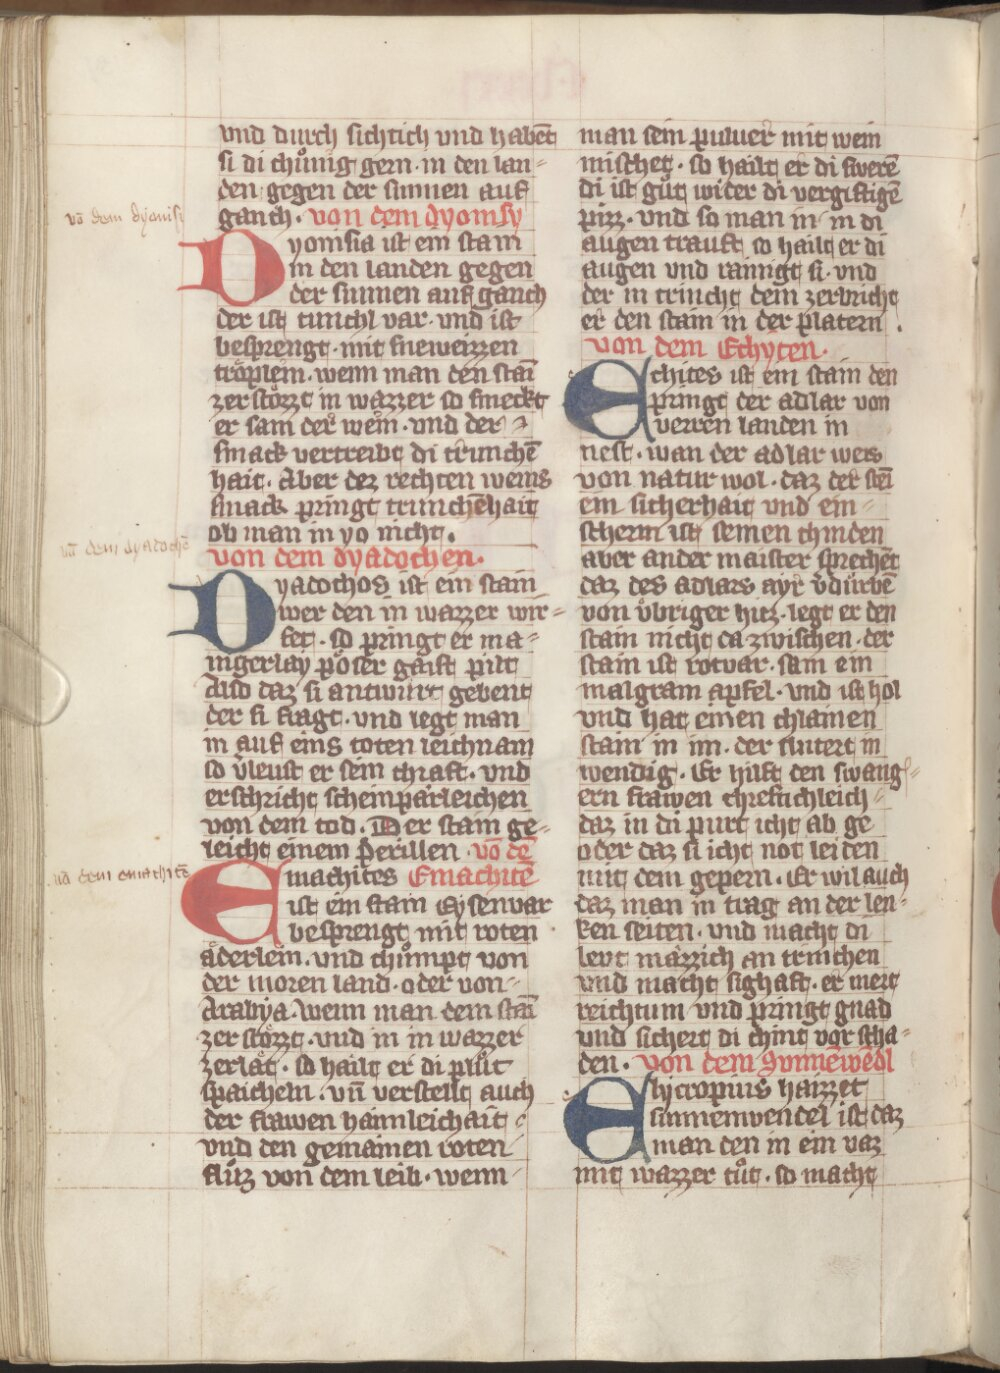 vnd durch sichtich vnd habēt
si di chůnig gern · in den lan-
den gegen der sunnen auf
ganch · von dem dyonisy
vō dem dyonisy
Dyonisia ist ein stain
in den landen gegen
der sunnen auf ganch
der ist tunchl var · vnd ist
besprengt · mit sneweizzen
tröplein · wenn man den staī
zerstözzt in wazzer so smeckt
er sam der wein · vnd der
smack vertreibt di trunchē
hait · Aber dez rechten weins
smack pringt trunchēhait
ob man in yo nicht ·
von dem dyadochen ·
vō dem dyadochē
Dyadochos ist ein stain
wer den in wazzer wir-
fet · so pringt er ma-
ingerlay pöser gaist pilt
Also daz si antwurt gebent
der si fragt · vnd legt man
in auf eins toten leichnam
so v̄leust er sein chraft · vnd
erschricht scheinpärleichen
von dem tod · Der stain ge-
leicht einem perillen · vō dē
Emachites Emachitē
vō dem emathitē
ist ein stain Eysenvar
besprengt mit roten
äderlein · vnd chůmpt von
der moren land · oder von
Arabya · Wenn man dem staī
zerstözzt · vnd in in wazzer
zerlat · so hailt er di plůt
spaicheln · vn̄ verstellt auch
der frawen hainleichait
vnd den gemainen roten
flůz von dem leib · wenn
man sein puluer mit wein
mischet · so hailt er di swerē
di ist gůt wider di vergiftigē
pizz · vnd so man in in di
augen trauft so hailt er di
augen vnd rainigt si · vnd
der in trincht dem zerbricht
er den stain in der platern ·
von dem Echyten ·
Echites ist ein stain den
pringt der adlar von
verren landen in
nest · wan der adlar weis
von natur wol · daz der stēi
ein sicherhait vnd ein
scherm ist seinen chinden
aber ander maister sprechēt
daz des adlars ayr v̄dürbē
von übriger hitz · legt er den
stain nicht da zwischen · der
stain ist rotvar · sam ein
malgram apfel · vnd ist hol
vnd hat einen chlainen
stain in im · der slutert in
wendig · Er hilft den swang-
ern frawen chreftichleich
daz in dů purt icht ab ge
oder daz si icht not leiden
mit dem gepern · Er wil auch
daz man in trag an der len-
ken seiten · vnd macht di
levt mäzzich an trinchen
vnd macht sighaft · er mert
reichtum vnd pringt gnad
vnd sichert di chint vor scha-
den · von dem Sunnēwēdl
Elycropius haizzet
sunnenwendel ist daz
man den in ein vaz
mit wazzer tůt · so macht